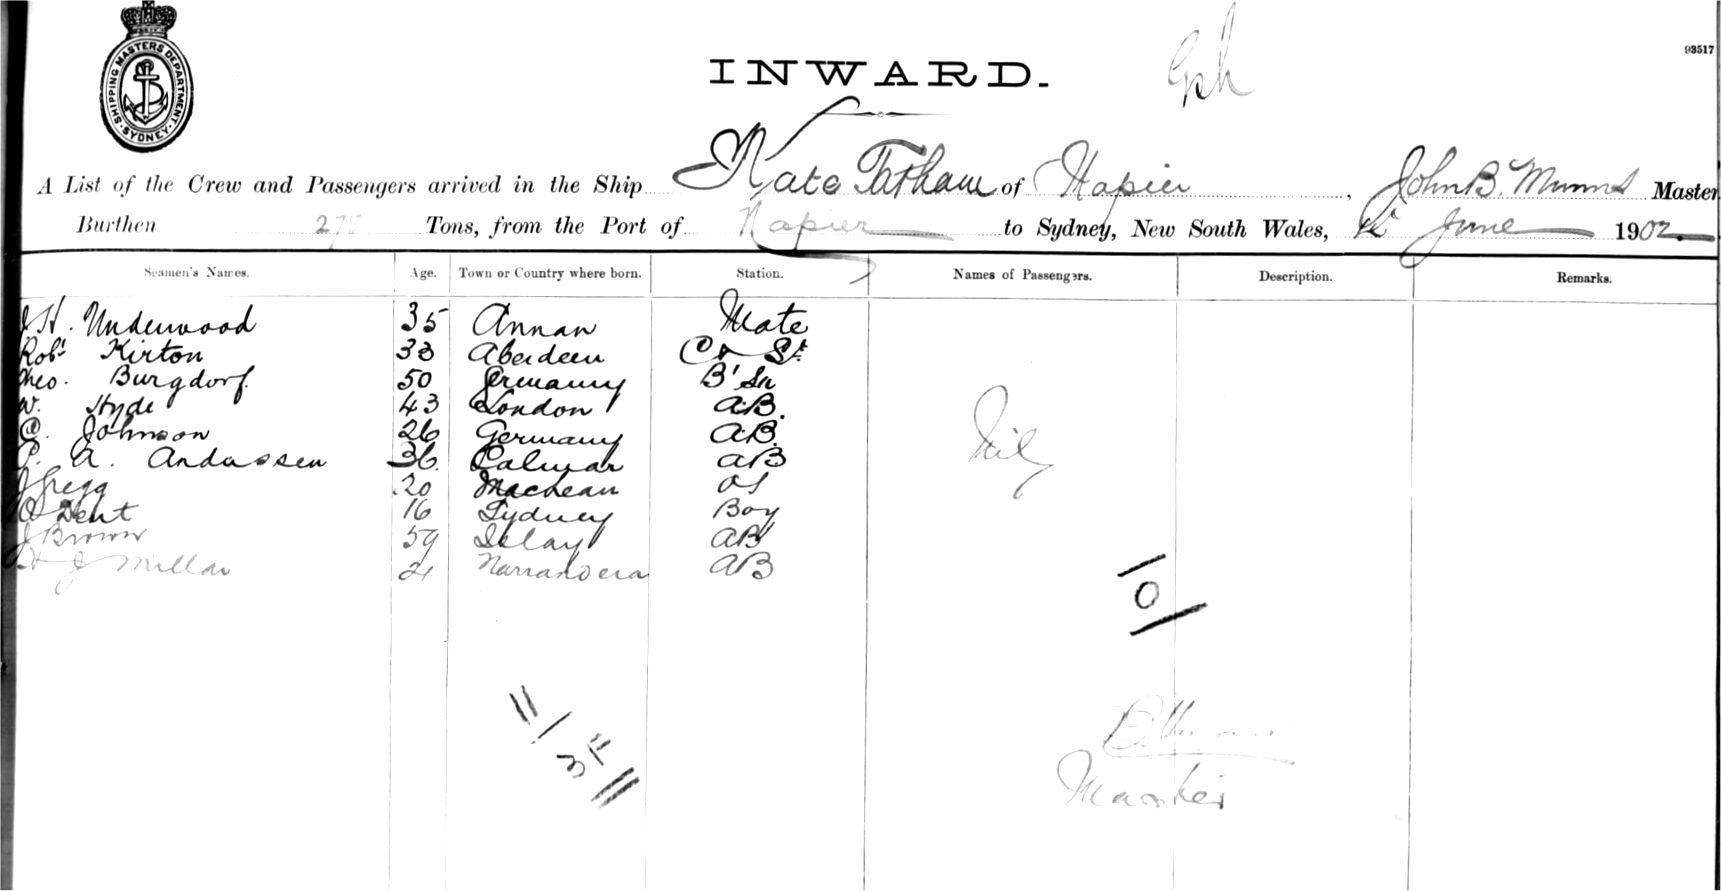 SHIPPING MASTERS DEPARTMENT SYDNEY
93517
INWARD.
A List of the Crew and Passengers arrived in the Ship Kate Tatham of Napier, John B. Munns Master
Burthen Tons, from the Port of Napier to Sydney, New South Wales, June 1902
Seamen's Names. Age. Town or Country where born. Station. Names of Passengers. Description. Remarks.
J H. Underwood 35 Annan Mate
Robt Kirton 33 Aberdeen
Theo. Burgdorf 50 Germany B'Sn
W. Hyde 43 London A.B.
C. Johnson 26 Germany A.B.
P. A. Anderssen 36 Calmar AB
J Gregg 20 Maclean OS
O Dent 16 Sydney Boy
J Brown 59 Islay AB
H J Millar 21 Narrandera AB
Nil
10
Master